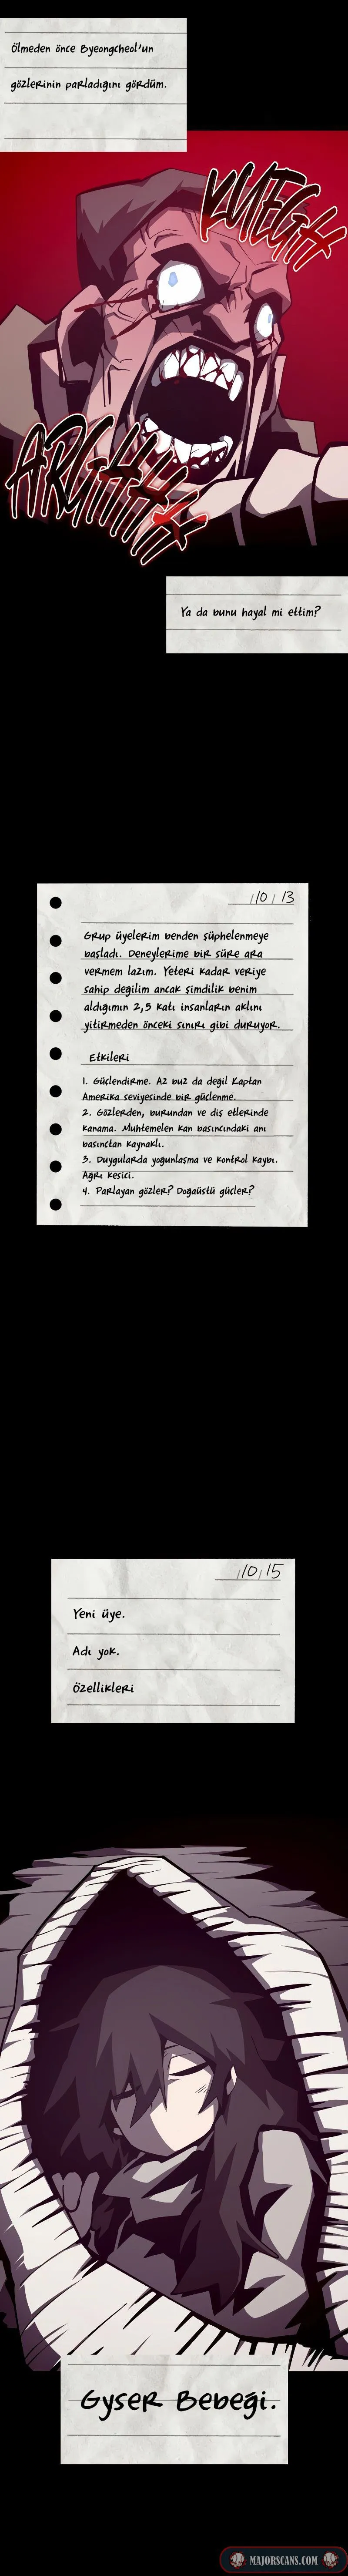 Ölmeden önce Byeongcheol'un
gözlerinin parladığını gördüm.
KUEGH
ARGHHH
Ya da bunu hayal mi ettim?
10 / 13
Grup üyelerim benden şüphelenmeye
başladı. Deneylerime bir süre ara
vermem lazım. Yeteri kadar veriye
sahip değilim ancak şimdilik benim
aldığımın 2,5 katı insanların aklını
yitirmeden önceki sınırı gibi duruyor.
Etkileri
1. Güçlendirme. Az buz da değil Kaptan
Amerika seviyesinde bir güçlenme.
2. Gözlerden, burundan ve diş etlerinde
kanama. Muhtemelen kan basıncındaki ani
basınçtan kaynaklı.
3. Duygularda yoğunlaşma ve kontrol kaybı.
Ağrı kesici.
4. Parlayan gözler? Doğaüstü güçler?
10 / 15
Yeni üye.
Adı yok.
Özellikleri
Gyser Bebeği.
MAJORSCANS.COM